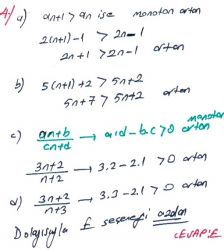 4/ a) an+1 > an ise monoton artan
2(n+1)-1 > 2n-1
2n+1 > 2n-1 artan
b) 5(n+1)+2 > 5n+2
5n+7 > 5n+2 artan
c) an+b / cn+d → a.d-b.c > 0 monoton artan
3n+2 / n+2 → 3.2-2.1 > 0 artan
d) 3n+2 / n+3 → 3.3-2.1 > 0 artan
Dolayısıyla E seçeneği azalan
CEVAP E